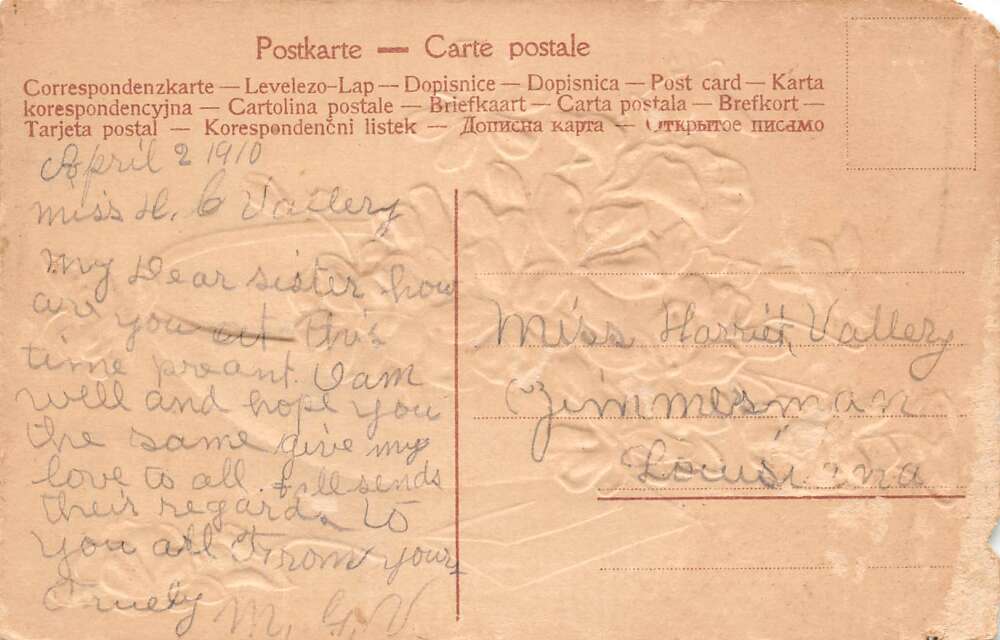 Postkarte — Carte postale
Correspondenzkarte — Levelezo-Lap — Dopisnice — Dopisnica — Post card — Karta
korespondencyjna — Cartolina postale — Briefkaart — Carta postala — Brefkort —
Tarjeta postal — Korespondenčni listek — Дописна карта — Открытое письмо
April 2 1910
Miss H. C Vallery
My Dear sister how
are you at this
time preant. I am
well and hope you
the same give my
love to all. all sends
their regards to
you all From your
Truely M. G. V
Miss Harriet Vallery
Zimmerman
Louisiana